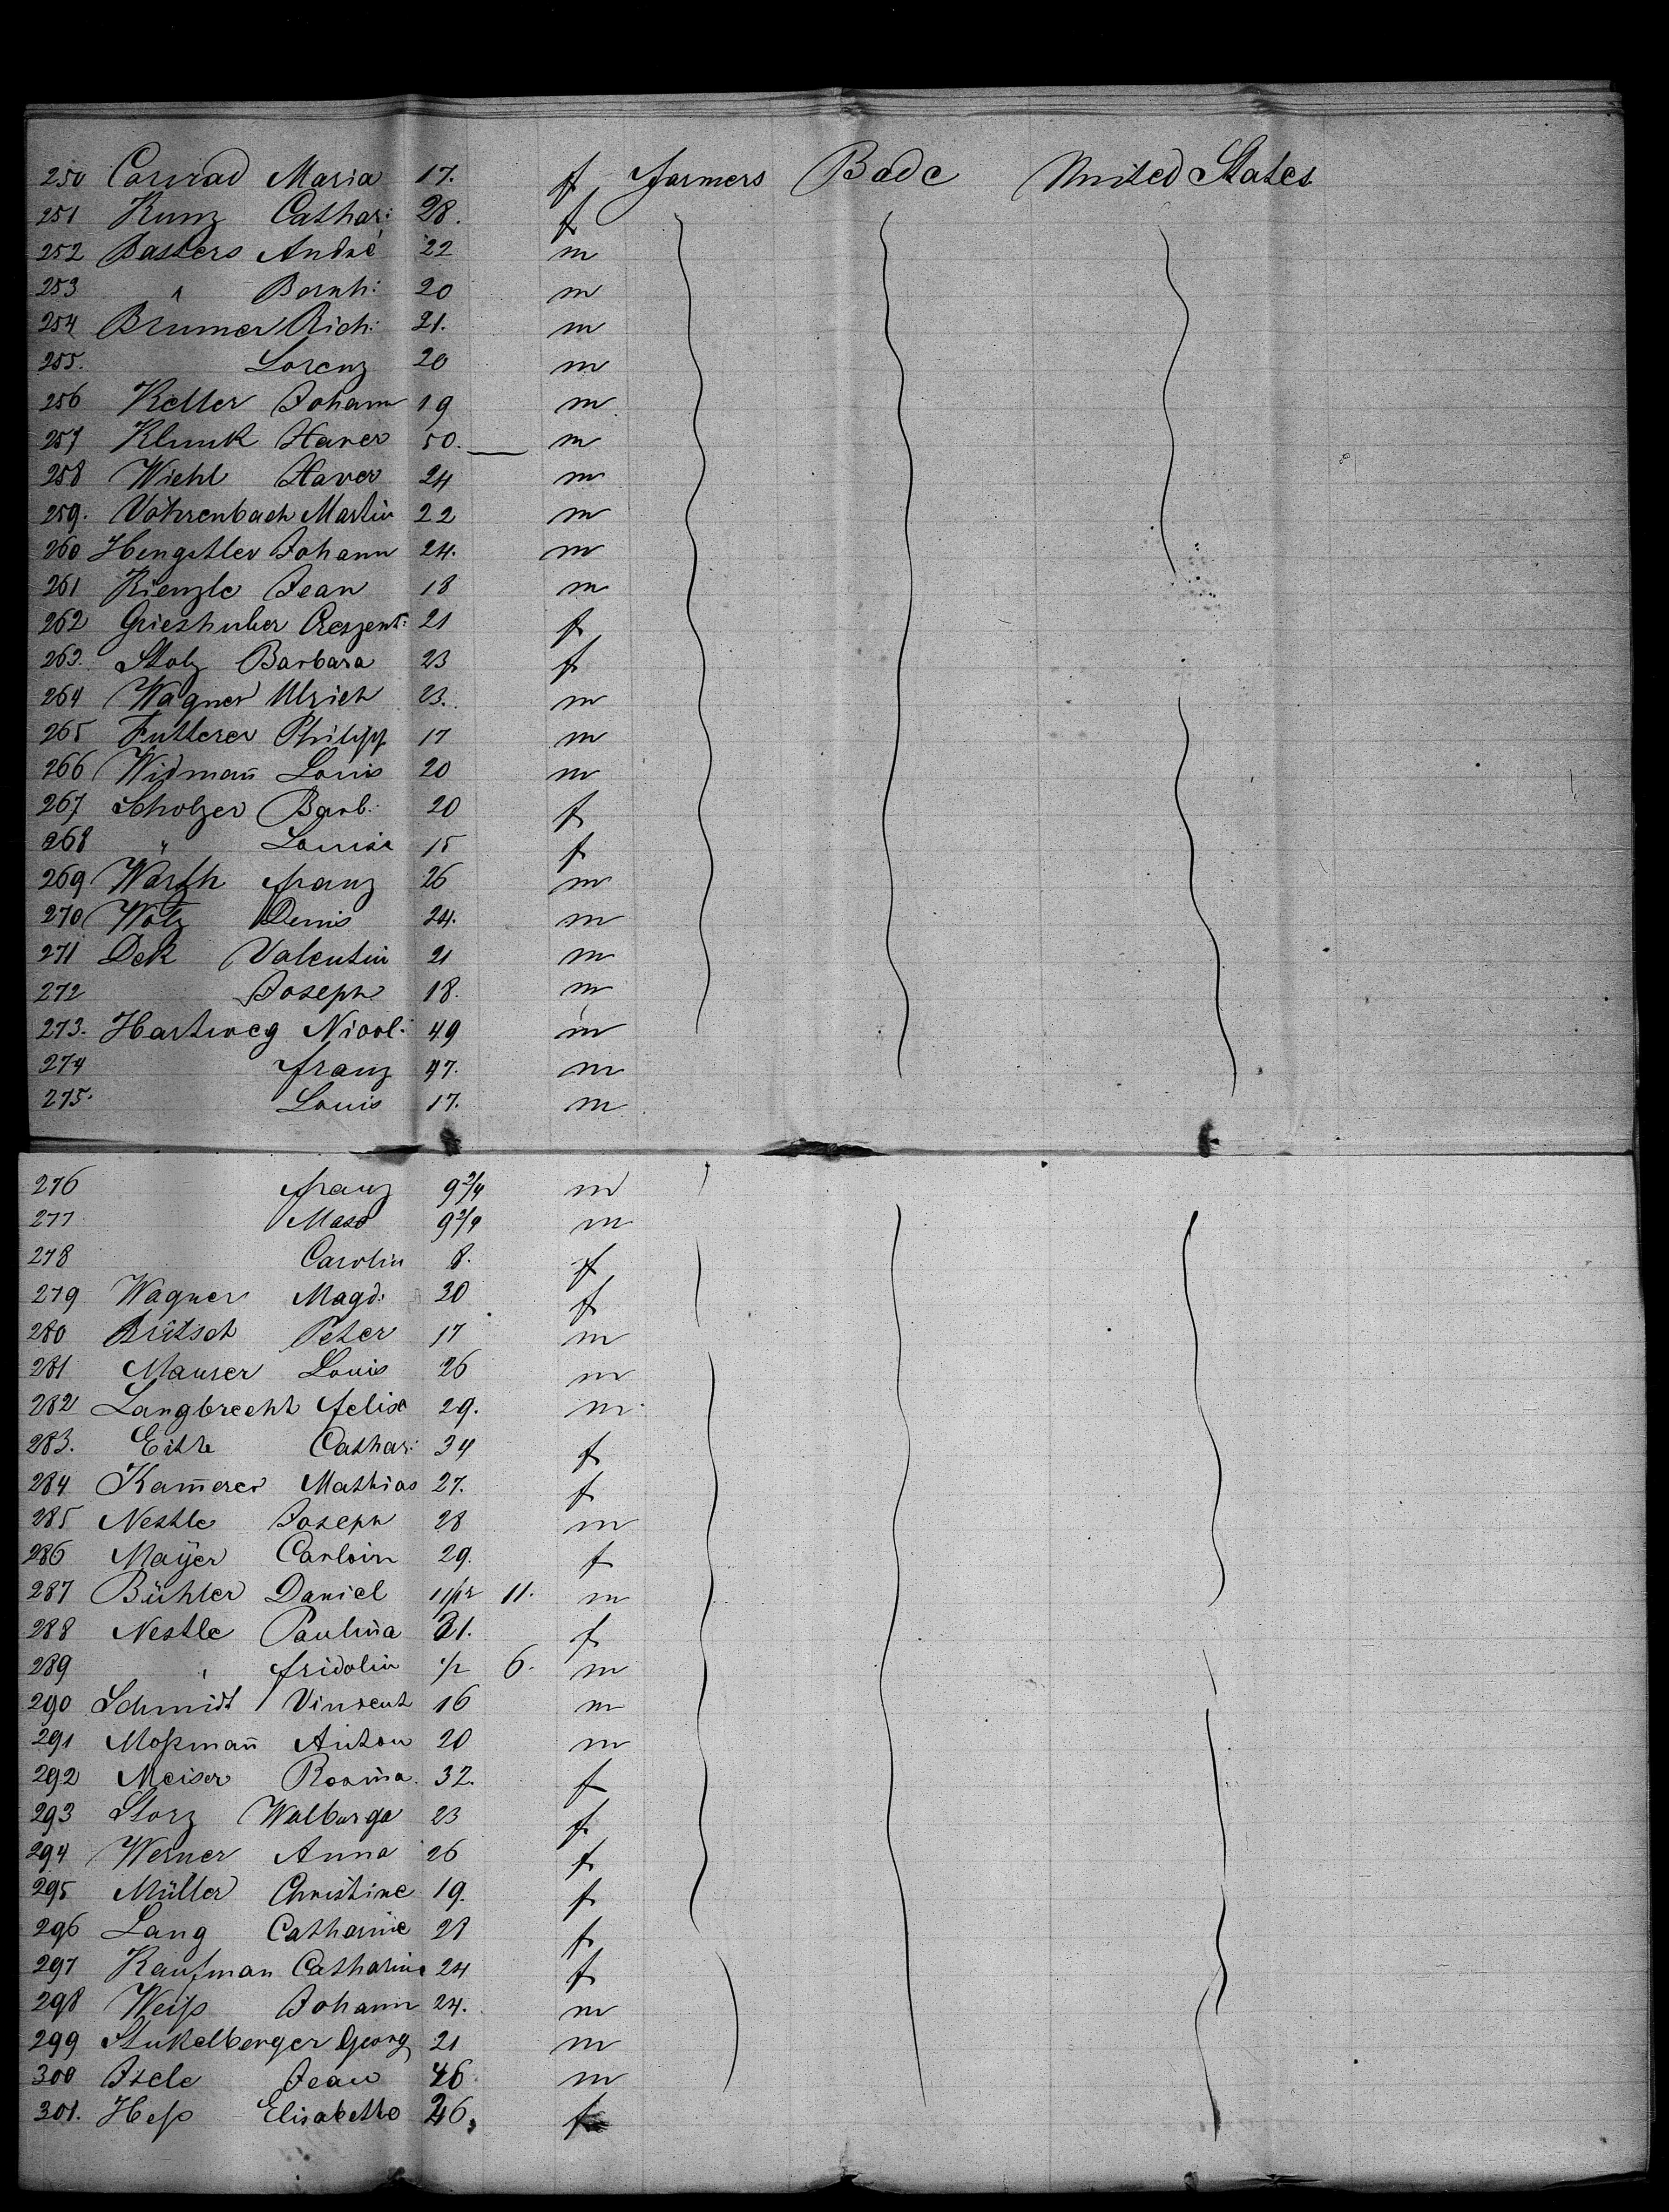 250 Conrad Maria 17. f farmers Bade United States
251 Kunz Cathar: 28. f
252 Basters André 22 m
253 " Bernh: 20 m
254 Brumer Rich: 21. m
255. Lorenz 20 m
256 Keller Johann 19 m
257 Klunk Xaver 50. m
258 Wiehl Xaver 24 m
259. Vöhrenbach Martin 22 m
260 Hengstler Johann 24. m
261 Kienzle Jean 18 m
262 Grieshuber Creszent: 21 f
263. Stolz Barbara 23 f
264 Wagner Ulrich 23. m
265 Futterer Philipp 17 m
266 Widmañ Louis 20 m
267 Scholzer Barb: 20 f
268 " Louise 15 f
269 franz 26 m
270 Wolz Denis 24. m
271 Dek Valentin 21 m
272 Joseph 18. m
273. Hartweg Nicol: 49 m
274 franz 47. m
275. Louis 17. m
276 franz 9 m
277 9 m
278 Carolin 8. f
279 Wagner Magd: 30 f
280 Britsch Peter 17 m
281 Maurer Louis 26 m
282 Langbrecht felix 29. m
283. Cathar: 34 f
284 Kam̄erer Mathias 27. f
285 Nestle Joseph 28 m
286 Maÿer Carloin 29. f
287 Bühler Daniel 11/12 11. m
288 Nestle Paulina 31. f
289 " fridolin 1/2 6. m
290 Schmidt Vincent 16 m
291 Moßmañ Anton 20 m
292 Meiser Rosina 32. f
293 Storz Walburga 23 f
294 Werner Anna 26 f
295 Müller Christine 19. f
296 Lang Catharine 28 f
297 Kaufman Catharine 24 f
298 Weiß Johann 24. m
299 Stukelberger Georg 21 m
300 Isele Jean 46 m
301. Heß Elisabetha 26. f